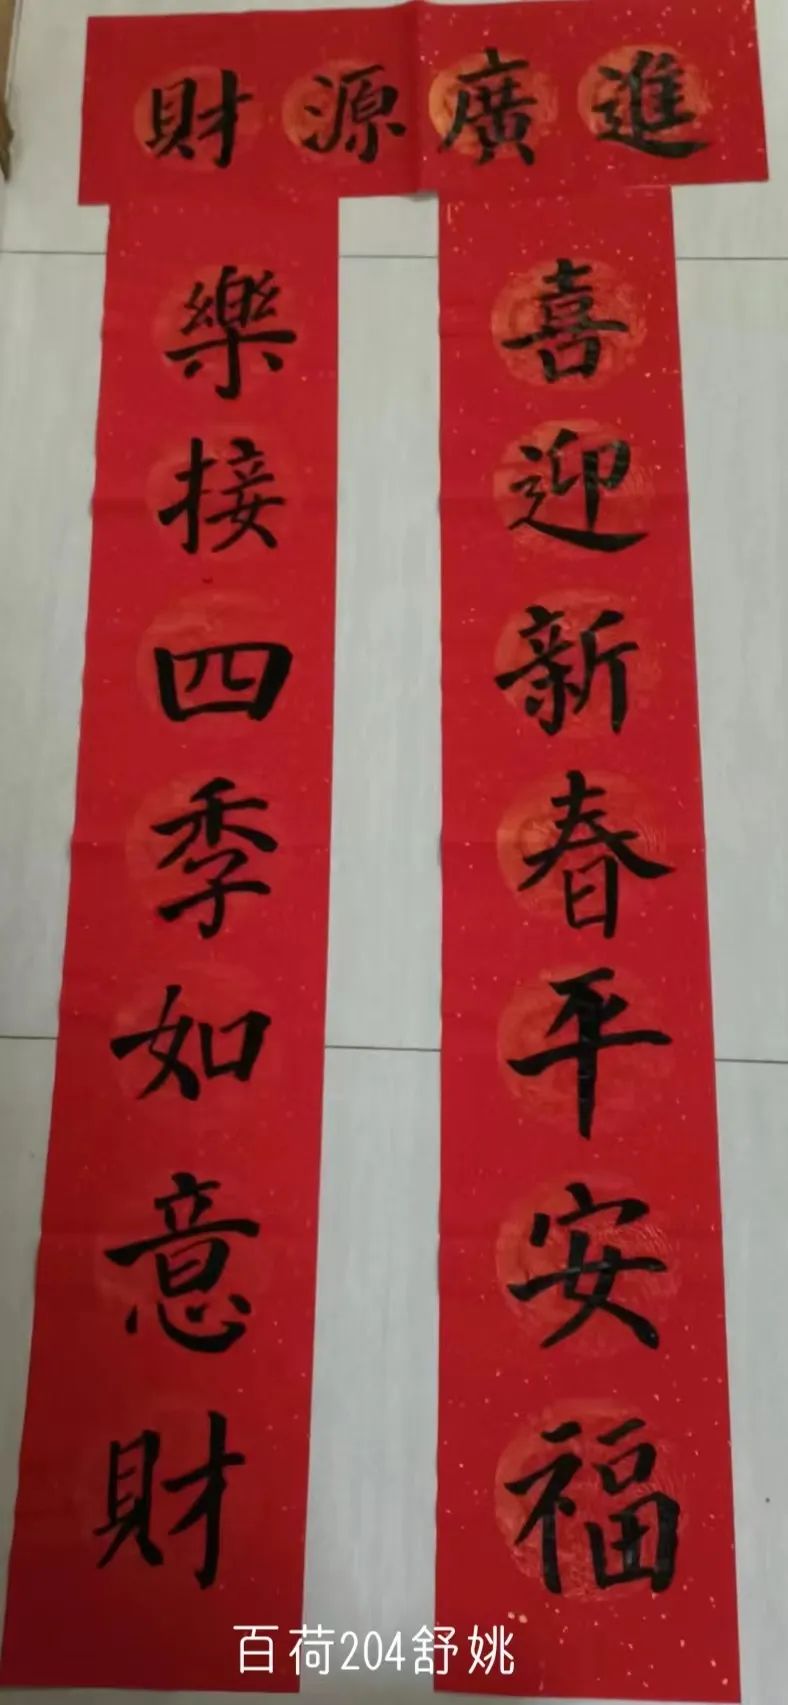 財源廣進
喜迎新春平安福
樂接四季如意財
百荷204舒姚